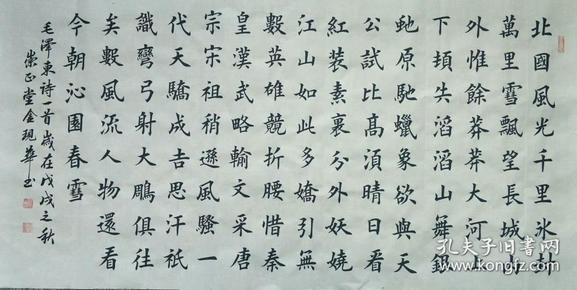 北國風光千里冰封
萬里雪飄望長城內
外惟餘莽莽大河上
下頓失滔滔山舞銀
虵原馳蠟象欲與天
公試比高須晴日看
紅裝素裹分外妖嬈
江山如此多嬌引無
數英雄競折腰惜秦
皇漢武略輸文采唐
宗宋祖稍遜風騷一
代天驕成吉思汗祇
識彎弓射大鵰俱往
矣數風流人物還看
今朝沁園春雪
毛澤東詩一首歲在戊戌之秋
崇正堂金現華书
孔夫子旧書网